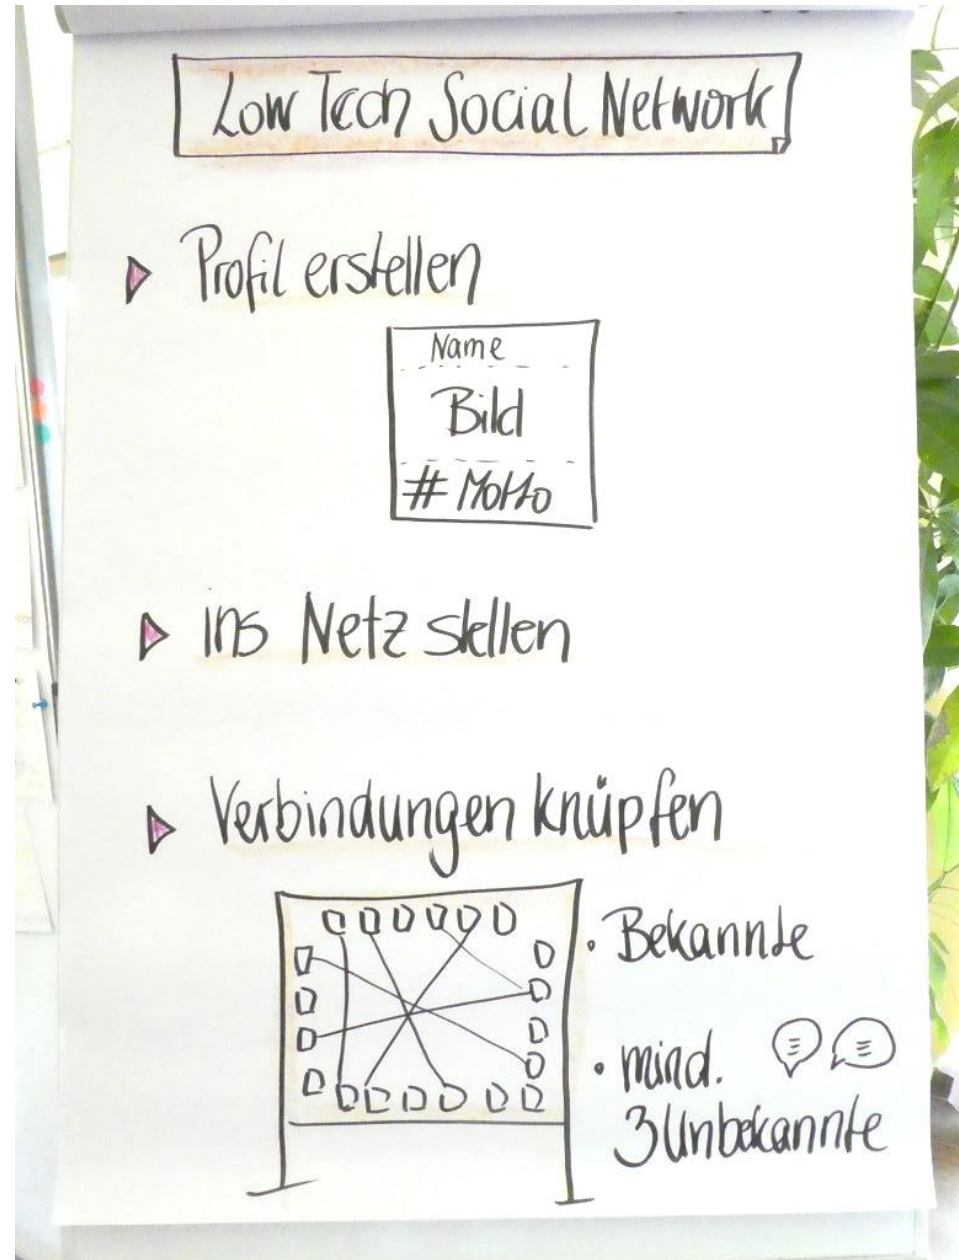 Low Tech Social Network
Profil erstellen
Name
Bild
# Motto
ins Netz stellen
Verbindungen knüpfen
• Bekannte
• mind.
3 Unbekannte